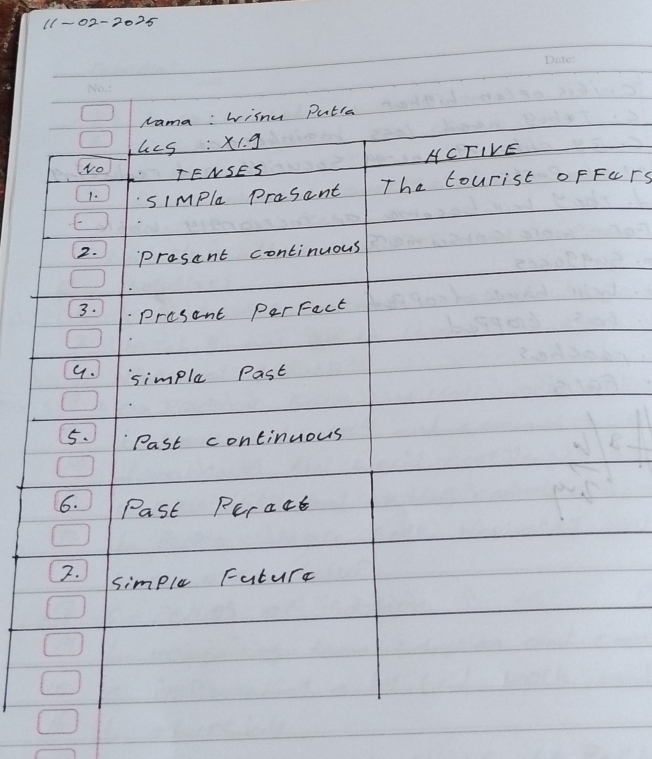 11-02-2025
Date:
No.:
Nama : Wisnu Putra
Kls : XI.9
No TENSES ACTIVE
1. Simple Present The tourist offers
2. Present continuous
3. Present Perfect
4. Simple Past
5. Past continuous
6. Past Peract
7. Simple Future